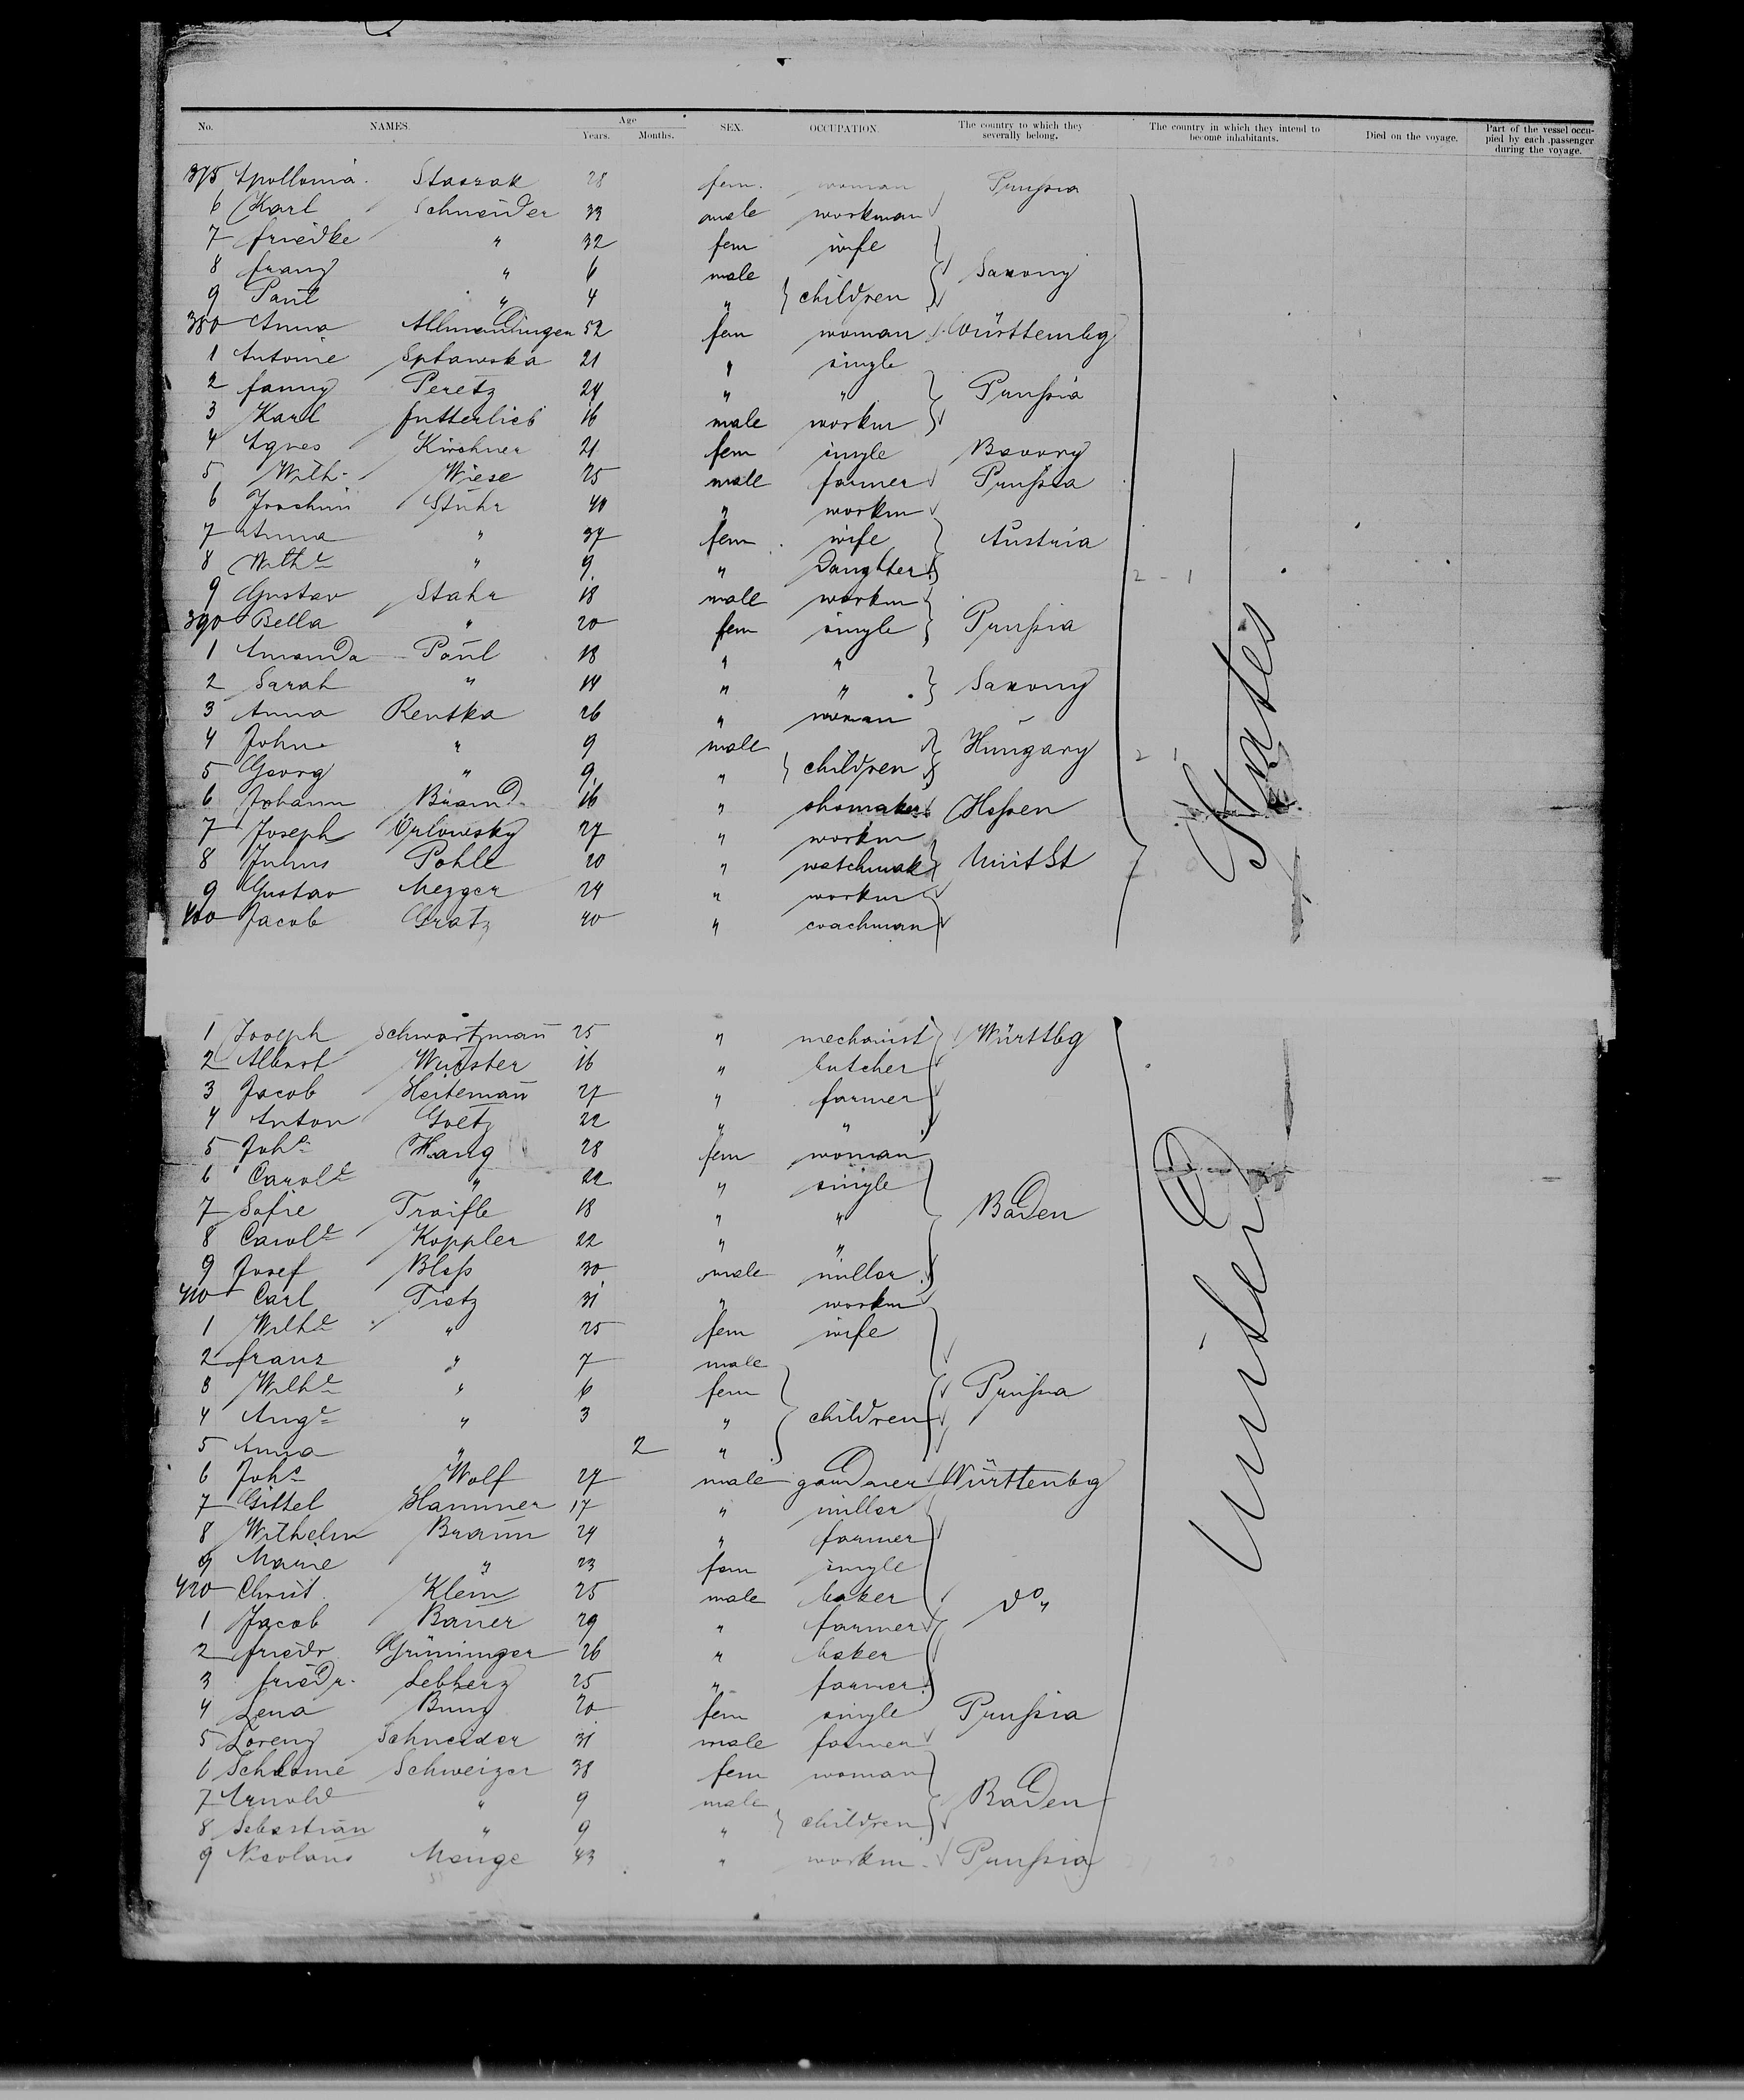 No. NAMES. Age Years. Months. SEX. OCCUPATION. The country to which they severally belong. The country in which they intend to become inhabitants. Died on the voyage. Part of the vessel occupied by each passenger during the voyage.
375 Apollonia Staszak 28 fem. woman Prußia
6 Karl Schneider 33 male workman
7 Friedke " 32 fem wife
8 Franz " 6 male Saxony
9 Paul " 4 " children
380 Anna Allmendingen 52 fem woman Württembg
1 Antonie Sptawska 21 " single
2 Fanny Peretz 24 " " Prußia
3 Karl Futterlieb 16 male workm
4 Agnes Kirchner 21 fem single
5 Wilh. Wiese 25 male farmer Prußia
6 Joachim Stuhr 40 " workm
7 Anna " 37 fem wife Austria
8 Wilhe " 9 " Daughter 2 - 1
9 Gustav Stahr 18 male workm
390 Bella " 20 fem single Prußia
1 Amanda Paul 18 " "
2 Sarah " 14 " " Saxony
3 Anna Rentka 26 " woman
4 John " 9 male Hungary 2 1
5 Georg " 9 " children
6 Johann Brand 16 " shomaker Heßen
7 Joseph Orlowsky 27 " workm
8 Julius Pohle 20 " watchmak Unit St
9 Gustav Mezger 24 " workm
400 Jacob Gratz 40 " coachman
1 Joseph Schwartzman̄ 25 " mechanist Württbg
2 Albert Wurster 16 " butcher
3 Jacob Heiteman̄ 27 " farmer
4 Anton Goetz 22 " "
5 Johe Hang 28 fem woman
6 Carole " 22 " single
7 Sofie Traifle 18 " " Baden
8 Carole Koppler 22 " "
9 Josef Bleß 30 male miller
410 Carl Tietz 31 " workm
1 Wilhe " 25 fem wife
2 Franz " 7 male
3 Wilhe " 6 fem Prußia
4 Auge " 3 " children
5 Anna " 2 "
6 Johs Wolf 27 male gardner Württenbg
7 Gittel Hammer 17 " miller
8 Wilhelm Braun 24 " farmer
9 Marie " 23 fem single
420 Christ. Klein 25 male baker do "
1 Jacob Bauer 29 " farmer
2 Friedr Grüninger 26 " baker
3 Friedr. Lebherz 25 " farmer
4 Lena Bung 20 fem single Prußia
5 Lorenz Schneider 31 male farmer
6 Schweizer 38 fem woman
7 Arnold " 9 male Baden
8 Sebastian " 9 " children
9 Nicolaus Menge 43 " workm Prußia
United States